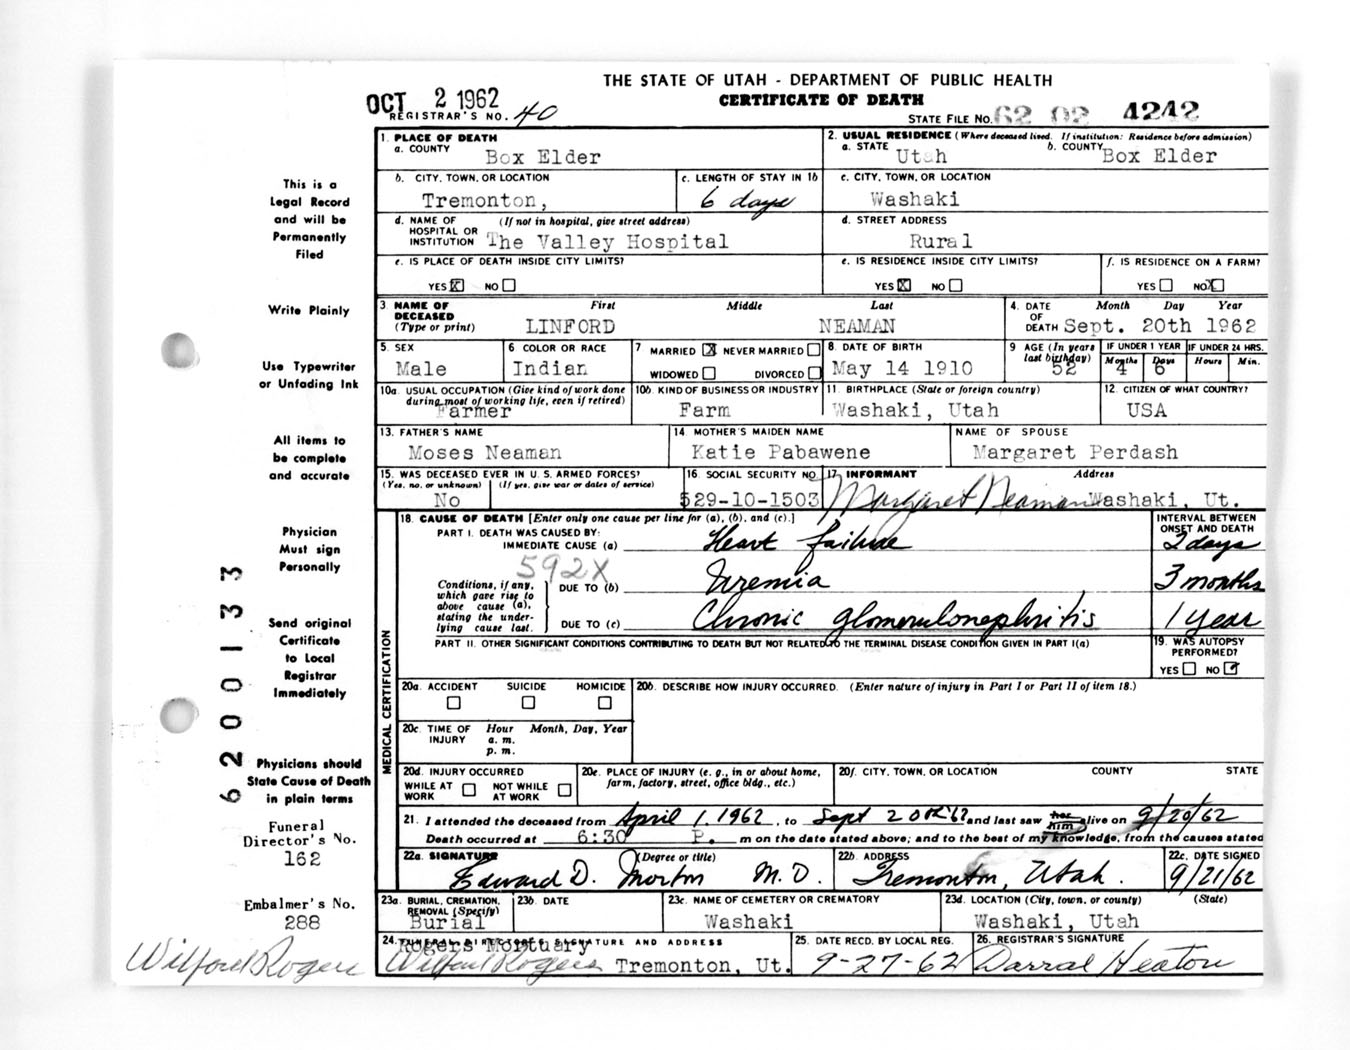 THE STATE OF UTAH - DEPARTMENT OF PUBLIC HEALTH
CERTIFICATE OF DEATH
OCT 2 1962
REGISTRAR'S NO. 40
STATE FILE NO. 62 02 4242
1. PLACE OF DEATH
a. COUNTY Box Elder
2. USUAL RESIDENCE (Where deceased lived. If institution: Residence before admission)
a. STATE Utah b. COUNTY Box Elder
b. CITY, TOWN, OR LOCATION Tremonton,
c. LENGTH OF STAY IN 1b 6 days
c. CITY, TOWN, OR LOCATION Washaki
d. NAME OF HOSPITAL OR INSTITUTION (If not in hospital, give street address) The Valley Hospital
d. STREET ADDRESS Rural
e. IS PLACE OF DEATH INSIDE CITY LIMITS? YES X NO
e. IS RESIDENCE INSIDE CITY LIMITS? YES X NO
f. IS RESIDENCE ON A FARM? YES NO X
3 NAME OF DECEASED (Type or print) First Middle Last
LINFORD NEAMAN
4. DATE OF DEATH Month Day Year
Sept. 20th 1962
5. SEX Male
6 COLOR OR RACE Indian
7 MARRIED X NEVER MARRIED
WIDOWED DIVORCED
8. DATE OF BIRTH May 14 1910
9 AGE (In years last birthday) 52
IF UNDER 1 YEAR Months 4 Days 6
IF UNDER 24 HRS. Hours Min.
10a. USUAL OCCUPATION (Give kind of work done during most of working life, even if retired) Farmer
10b. KIND OF BUSINESS OR INDUSTRY Farm
11. BIRTHPLACE (State or foreign country) Washaki, Utah
12. CITIZEN OF WHAT COUNTRY? USA
13. FATHER'S NAME Moses Neaman
14 MOTHER'S MAIDEN NAME Katie Pabawene
NAME OF SPOUSE Margaret Perdash
15. WAS DECEASED EVER IN U.S. ARMED FORCES?
(Yes, no, or unknown) (If yes, give war or dates of service)
No
16 SOCIAL SECURITY NO. 529-10-1503
17. INFORMANT Address
Margaret Neaman Washaki, Ut.
MEDICAL CERTIFICATION
18. CAUSE OF DEATH [Enter only one cause per line for (a), (b), and (c).]
INTERVAL BETWEEN ONSET AND DEATH
PART I. DEATH WAS CAUSED BY:
IMMEDIATE CAUSE (a) Heart failure 2 days
592X
Conditions, if any, which gave rise to above cause (a), stating the underlying cause last.
DUE TO (b) Uremia 3 months
DUE TO (c) Chronic glomerulonephritis 1 year
PART II. OTHER SIGNIFICANT CONDITIONS CONTRIBUTING TO DEATH BUT NOT RELATED TO THE TERMINAL DISEASE CONDITION GIVEN IN PART I(a)
19. WAS AUTOPSY PERFORMED?
YES NO
20a. ACCIDENT SUICIDE HOMICIDE
20b. DESCRIBE HOW INJURY OCCURRED. (Enter nature of injury in Part I or Part II of item 18.)
20c. TIME OF INJURY Hour Month, Day, Year
a. m.
p. m.
20d. INJURY OCCURRED
WHILE AT WORK NOT WHILE AT WORK
20e. PLACE OF INJURY (e. g., in or about home, farm, factory, street, office bldg., etc.)
20f. CITY, TOWN, OR LOCATION COUNTY STATE
21. I attended the deceased from April 1, 1962, to Sept 20th '62 and last saw her him alive on 9/20/62
Death occurred at 6:30 P. m on the date stated above; and to the best of my knowledge, from the causes stated
22a. SIGNATURE (Degree or title)
Edward D. Morton M.D.
22b. ADDRESS Tremonton, Utah.
22c. DATE SIGNED 9/21/62
23a. BURIAL, CREMATION, REMOVAL (Specify) Burial
23b. DATE
23c. NAME OF CEMETERY OR CREMATORY Washaki
23d. LOCATION (City, town, or county) (State)
Washaki, Utah
24. FUNERAL DIRECTOR'S SIGNATURE AND ADDRESS
Rogers Mortuary
Wilford Rogers Tremonton, Ut.
25. DATE RECD. BY LOCAL REG. 9-27-62
26. REGISTRAR'S SIGNATURE Darral Heaton
This is a
Legal Record
and will be
Permanently
Filed
Write Plainly
Use Typewriter
or Unfading Ink
All items to
be complete
and accurate
Physician
Must sign
Personally
Send original
Certificate
to Local
Registrar
Immediately
Physicians should
State Cause of Death
in plain terms
6200133
Funeral
Director's No.
162
Embalmer's No.
288
Wilford Rogers